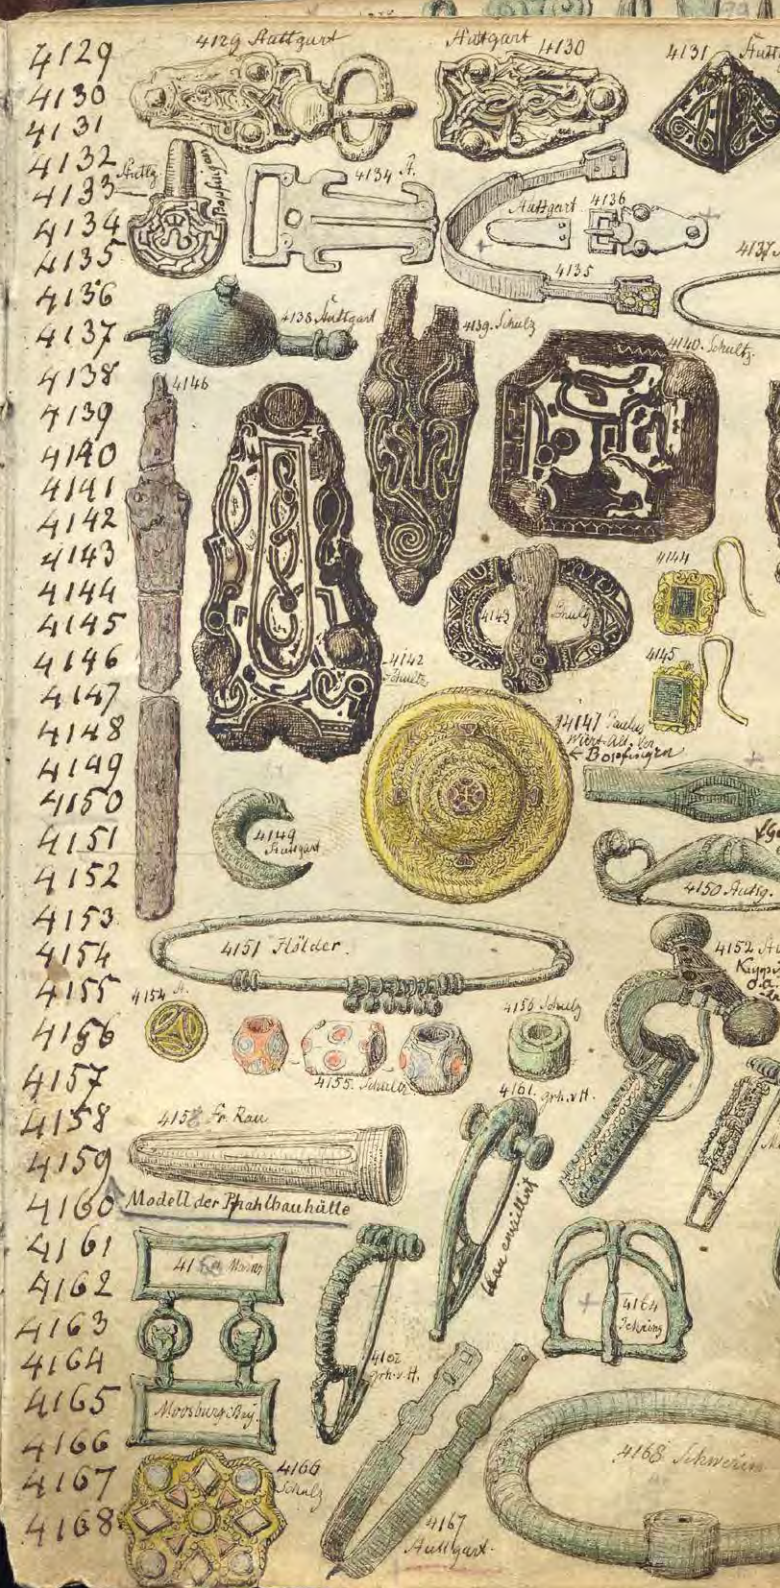 4129
4130
4131
4132
4133
4134
4135
4136
4137
4138
4139
4140
4141
4142
4143
4144
4145
4146
4147
4148
4149
4150
4151
4152
4153
4154
4155
4156
4157
4158
4159
4160
4161
4162
4163
4164
4165
4166
4167
4168
4129 Stuttgart
Stuttgart 4130
4131
Bopfingen
4134
Stuttgart 4136
4135
4137
4138 Stuttgart
4139. Schulz
4140. Schultz
4146
4144
4143 Schulz
4145
4142
Schultz
4147 Paulus
Bopfingen
4149
Stuttgart
4150 Stuttg.
4151 Hölder.
4152
4154
4156 Schulz
4155. Schultz
4161. grh.v.H.
Fr. Rau
Modell der Phahlbauhütte
blau emaillirt
4162
grh.v.H.
4164
Moosburg Bay.
4166
Schulz
4167
Stuttgart.
4168 Schwerin